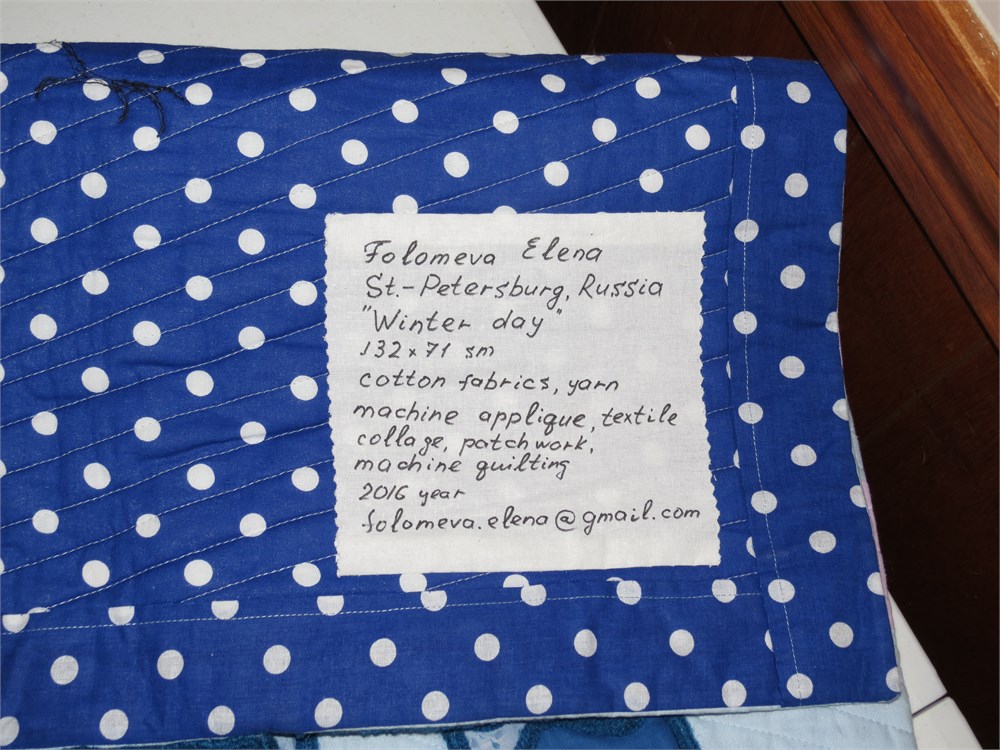 Folomeva Elena
St.-Petersburg, Russia
"Winter day"
132x71 sm
cotton fabrics, yarn
machine applique, textile
collage, patchwork,
machine quilting
2016 year
folomeva.elena@gmail.com